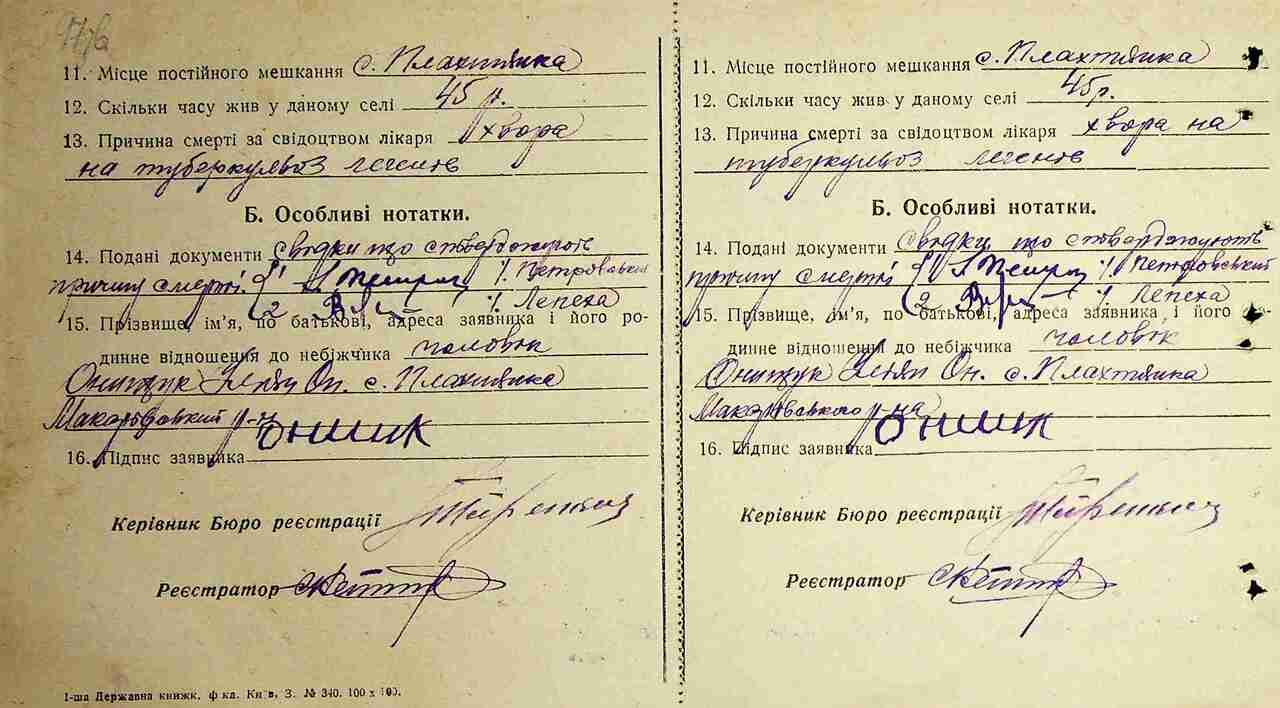 11. Місце постійного мешкання с. Плахтянка
12. Скільки часу жив у даному селі 45 р.
13. Причина смерті за свідоцтвом лікаря хвора
на туберкульоз легенів
Б. Особливі нотатки.
14. Подані документи свідки що стверджують
причину смерті 1 Петровський
2 Лепеха
15. Прізвище, ім'я, по батькові, адреса заявника і його ро-
динне відношення до небіжчика чоловік
Онищук Он. с. Плахтянка
Макарівський р-н
16. Підпис заявника онищк
Керівник Бюро реєстрації
Реєстратор
1-ша Державна книжк. ф-кл. Київ, З. № 340. 100 х 100.
11. Місце постійного мешкання с. Плахтянка
12. Скільки часу жив у даному селі 45 р.
13. Причина смерті за свідоцтвом лікаря хвора на
туберкульоз легенів
Б. Особливі нотатки.
14. Подані документи свідки що стверджують
причину смерті 1 Петровський
2 Лепеха
15. Прізвище, ім'я, по батькові, адреса заявника і його ро-
динне відношення до небіжчика чоловік
Онищук Он. с. Плахтянка
Макарівського р-на
16. Підпис заявника онищк
Керівник Бюро реєстрації
Реєстратор